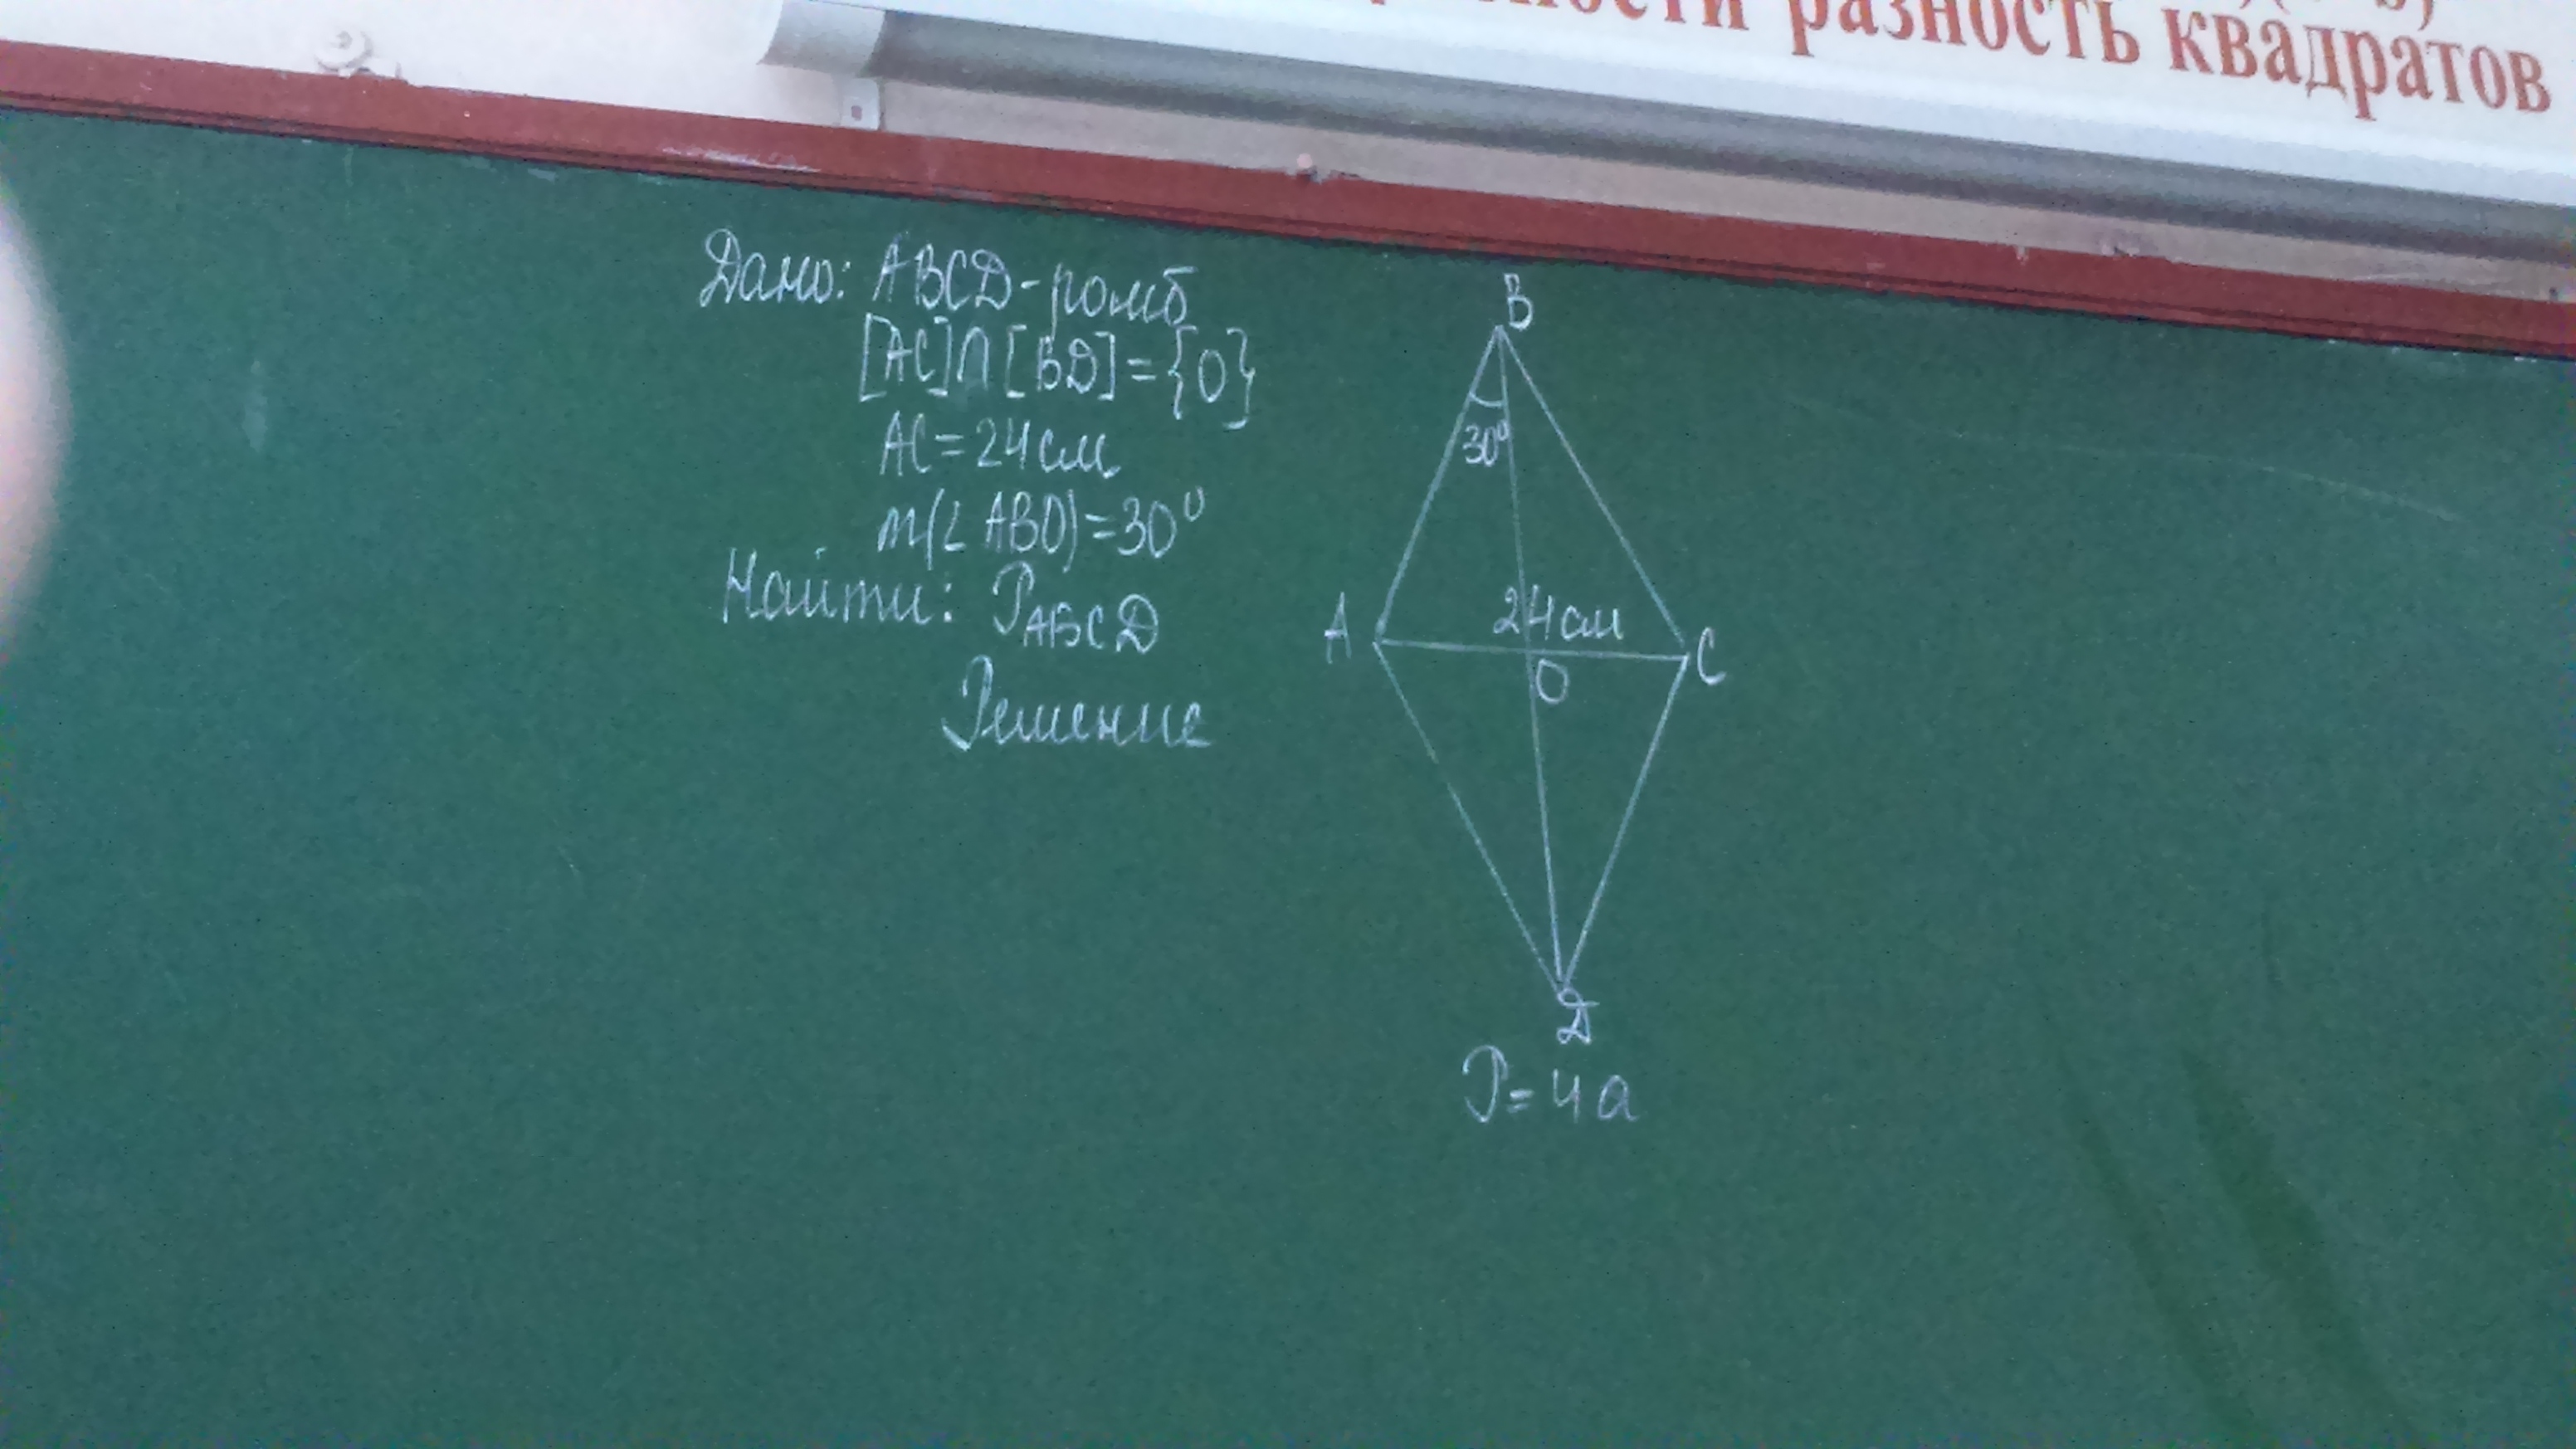 разность квадратов
Дано: ABCD-ромб
[AC]∩[BD]={O}
AC=24см
m(∠ABO)=30⁰
Найти: P_ABCD
Решение
B
30⁰
24см
A
C
O
D
P=4a